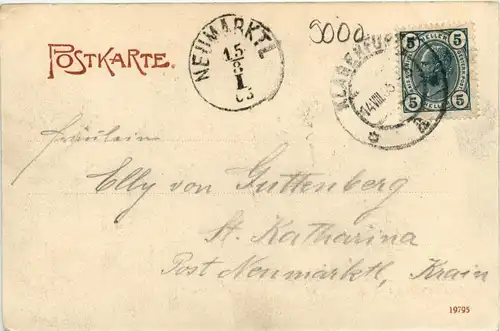 POSTKARTE.
NEUMARKTL
15
8
I
03
5000
KLAGENFURT
14 VIII
5 HELLER 5
5 HELLER 5
Fräulein
Elly von Guttenberg
St. Katharina
Post Neumarktl, Krain
19795